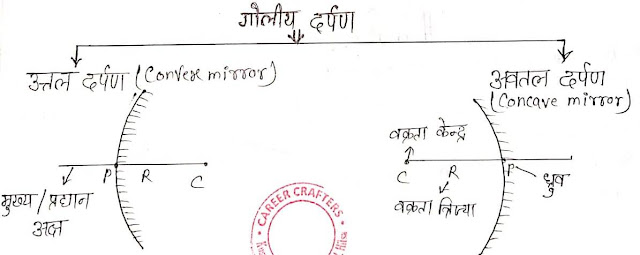 गोलीय दर्पण
उत्तल दर्पण (Convexe mirror)
अवतल दर्पण
(Concave mirror)
वक्रता केन्द्र
P R C
C R P
ध्रुव
मुख्य / प्रधान
अक्ष
वक्रता त्रिज्या
CAREER CRAFTERS